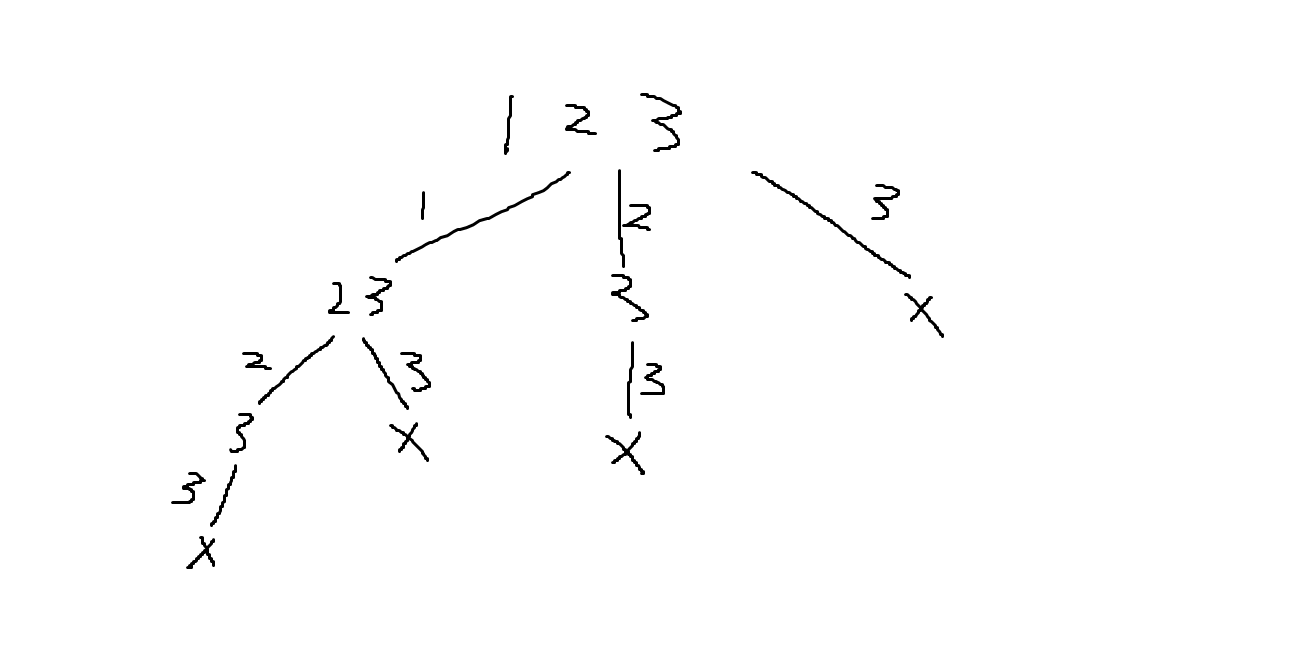 1 2 3
1 2 3
2 3 3 X
2 3 3
3 X X
3
X